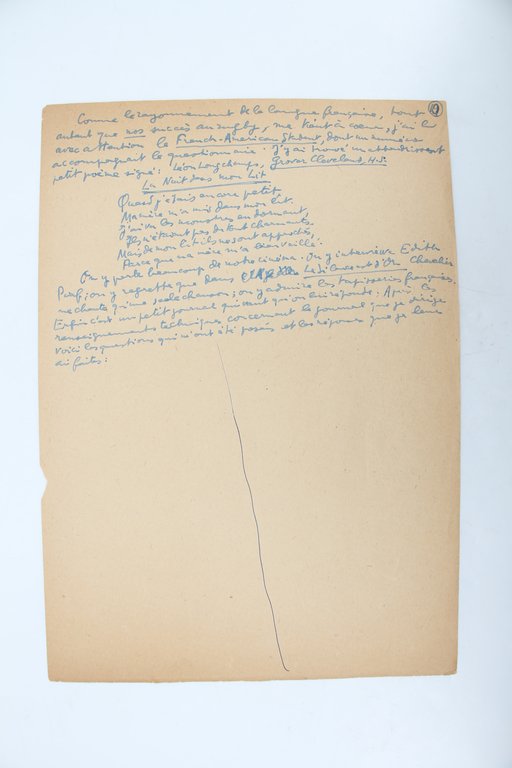 9
Comme le rayonnement de la langue française, tout
autant que nos succès au rugby, me tient à cœur, j'ai lu
avec attention le French-American Student dont un numéro
accompagnait le questionnaire. J'y ai trouvé un attendrissant
petit poème signé: Léon Longchamps, Grover Cleveland H.S.
La Nuit dans mon Lit
Quand j'étais encore petit,
Ma mère m'a mis dans mon lit.
J'ai vu les monstres en dormant,
Ils n'étaient pas du tout charmants.
Mais de mon lit ils ne sont approchés,
Parce que ma mère m'a bien veillé.
On y parle beaucoup de notre cinéma. On y interviewe Edith
Piaf; on y regrette que dans Le Silence est d'Or Chevalier
ne chante qu'une seule chanson; on y admire les tapisseries françaises.
Enfin c'est un petit journal qui veut qu'on lui réponde. Après les
renseignements techniques, concernant le journal que je dirige,
voici les questions qui m'ont été posées et les réponses que je leur
ai faites: